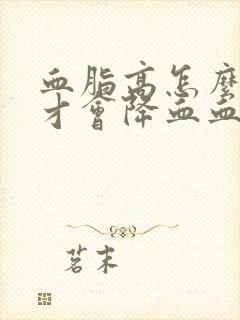 血脂高怎麼
才會降血血
茗末